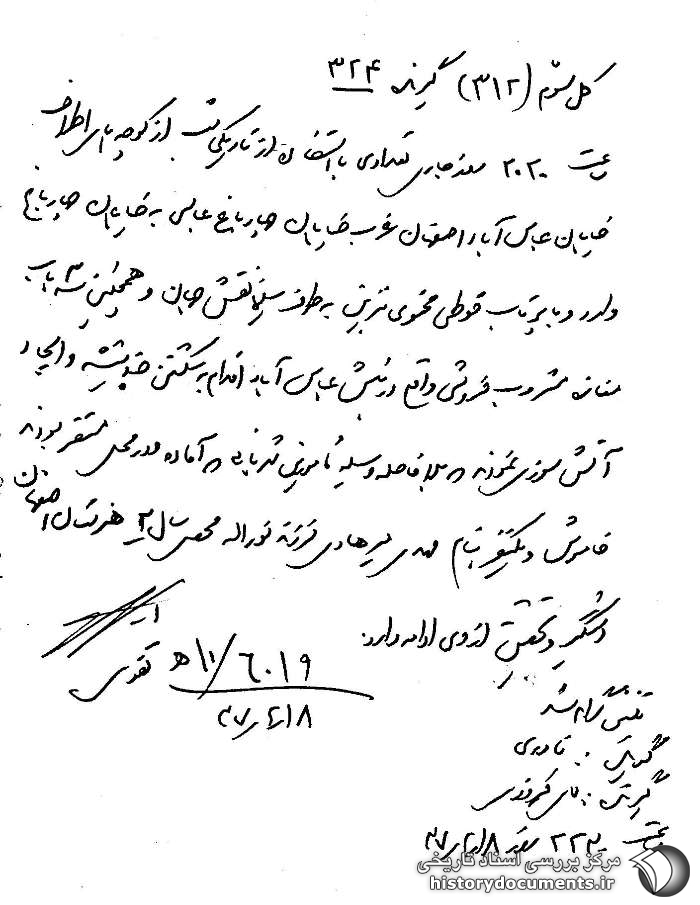 کل سوم (۳۱۲) گیرنده ۳۲۴
ساعت ۲۰۲۰ روز جاری تعدادی با استفاده از تاریکی شب از کوچه های اطراف
خیابان عباس آباد اصفهان غرب خیابان چهارباغ عباسی به خیابان چهارباغ
وارد و با پرتاب قوطی محتوی بنزین به طرف سینما نقش جهان و همچنین ۳ باب
مغازه مشروب فروشی واقع در نبش عباس آباد اقدام به شکستن شیشه و ایجاد
آتش سوزی نموده که بلافاصله وسیله مامورین شهربانی که آماده در محل مستقر بودند
خاموش و یکنفر بنام میرهادی فرزند نوراله هنرستان اصفهان
دستگیر و تحقیق از وی ادامه دارد.
۶۰۱۹/۱۰ھ تقوی
۳۷/۲/۸
تلفنگرام شد
گوینده: نادری
گیرنده:
ساعت ۲۲۳۰ روز ۳۷/۲/۸
مرکز بررسی اسناد تاریخی
historydocuments.ir